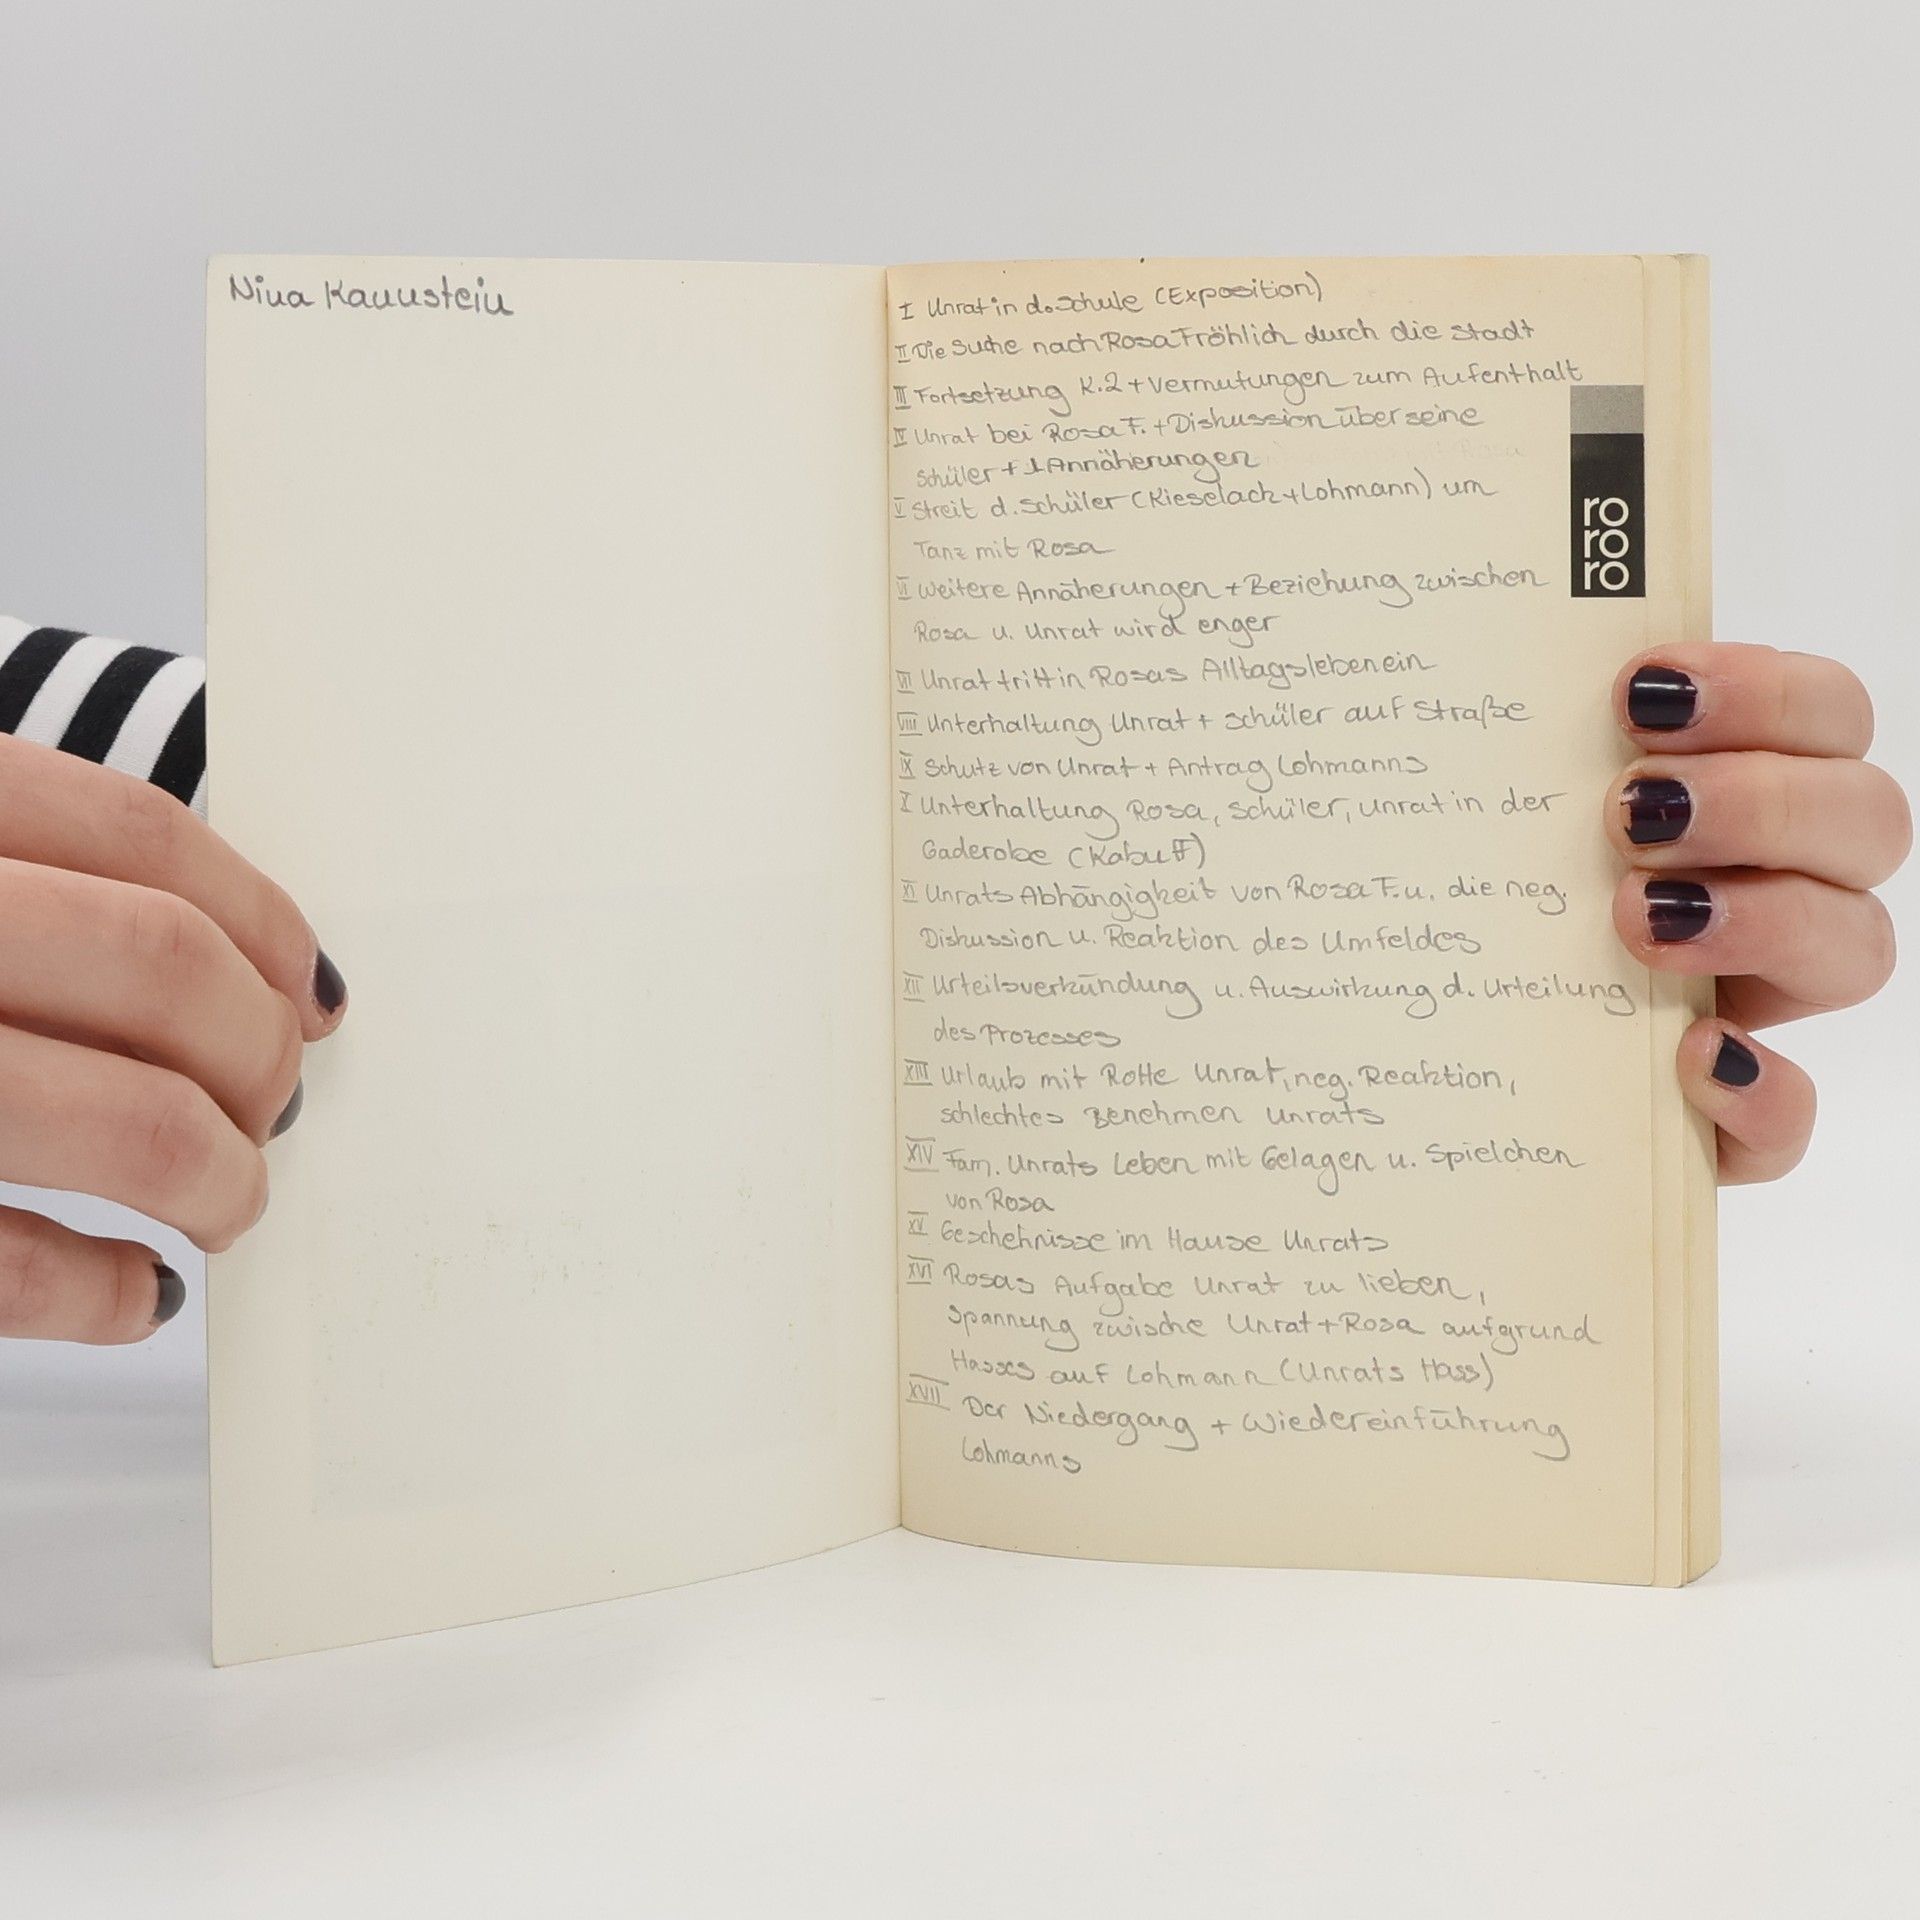 Nina Kannstein
I Unrat in d. Schule (Exposition)
II Die Suche nach Rosa Fröhlich durch die Stadt
III Fortsetzung K.2 + Vermutungen zum Aufenthalt
IV Unrat bei Rosa F. + Diskussion über seine
Schüler + 1. Annäherungen
V Streit d. Schüler (Kieselack + Lohmann) um
Tanz mit Rosa
VI Weitere Annäherungen + Beziehung zwischen
Rosa u. Unrat wird enger
VII Unrat tritt in Rosas Alltagsleben ein
VIII Unterhaltung Unrat + Schüler auf Straße
IX Schutz von Unrat + Antrag Lohmanns
X Unterhaltung Rosa, Schüler, Unrat in der
Gaderobe (Kabuff)
XI Unrats Abhängigkeit von Rosa F. u. die neg.
Diskussion u. Reaktion des Umfeldes
XII Urteilsverkündung u. Auswirkung d. Urteilung
des Prozesses
XIII Urlaub mit Rotte Unrat, neg. Reaktion,
schlechtes Benehmen Unrats
XIV Fam. Unrats Leben mit Gelagen u. Spielchen
von Rosa
XV Geschehnisse im Hause Unrats
XVI Rosas Aufgabe Unrat zu lieben,
Spannung zwische Unrat + Rosa aufgrund
Hasses auf Lohmann (Unrats Hass)
XVII Der Niedergang + Wiedereinführung
Lohmanns
ro
ro
ro